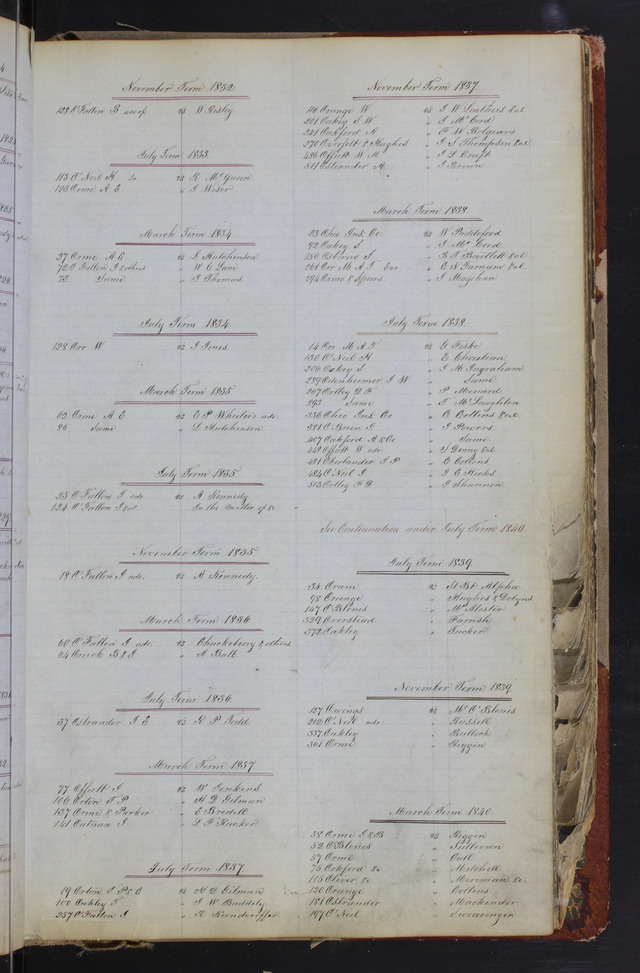 November Term 1832
128 O'Fallon B vs W Risley
July Term 1833
113 O'Neil H vs R McQueen
125 Orme A E " I Wiser
March Term 1834
27 Orme A E vs L Hutchinson
72 O'Fallon I & others " W C Lane
73 Same " I Thomas
July Term 1834
128 Orr W vs I Jones
March Term 1835
62 Orme A E vs E P Wheeler adr
86 Same " L Hutchinson
July Term 1835
23 O'Fallon I adr vs A Kennedy
124 O'Fallon I & al In the matter of &c
November Term 1835
18 O'Fallon I adr vs A Kennedy
March Term 1836
60 O'Fallon I adr vs & others
64 Orrick B & I " A Ball
July Term 1836
37 Ostrander I E vs R P Todd
March Term 1837
77 Offutt I vs W Jenkins
106 T P " M D Gilman
137 Orme & Parker " E Bredell
141 I " L F Rucker
July Term 1837
19 T P & O vs M D Gilman
100 Oakley T " I W
257 O'Fallon I " R
November Term 1837
116 Orange W vs I W & al
201 Oakey S W " I McCord
241 Oakford A " T W Belgrano
270 & Hughes " I S Thompson & al
486 Offutt W M " I L Croft
511 Ostrander A " I Brown
March Term 1838
23 Ohio Ins Co vs W
92 Oakey S " I McCord
150 Osborne S " B F Bartlett & al
261 Orr M A T Exr " C N Farnum & al
294 Orme & Spiers " I Magehan
July Term 1838
14 Orr M A T vs G Fiske
130 O'Neil H " E Christian
200 Oakey S " I M Ingraham
289 Odenheimer I W " Same
207 D F " P Menard
293 Same " E McLaughlin
336 Ohio Ins Co " O Collins & al
381 O'Brien I " I Powers
407 Oakford A & Co " Same
448 Offutt W adr " S Denny & al
481 Oberlander I P " E Collins
484 O'Neil I " I E
503 F D " I Shannon
See Continuation under July Term 1840
July Term 1839
34 Orum vs St Bt Alpha
98 Orange " Hughes & Dobyns
147 O'Blenis " McAlister
329 Overstead " Farrish
372 Oakley " Tucker
November Term 1839
127 Owings vs Mc O'Blenis
212 O'Neil adr " Russell
337 Oakley " Bullock
361 Orme " Riggin
March Term 1840
38 Orme I & B vs Riggin
52 O'Blenis " Sullivan
57 Orme " Call
75 Oakford &c " Mitchell
115 Oliver &c " Merriman &c
120 Orange " Collins
181 Ostrander " Mackender
197 O'Neil " Swearengen